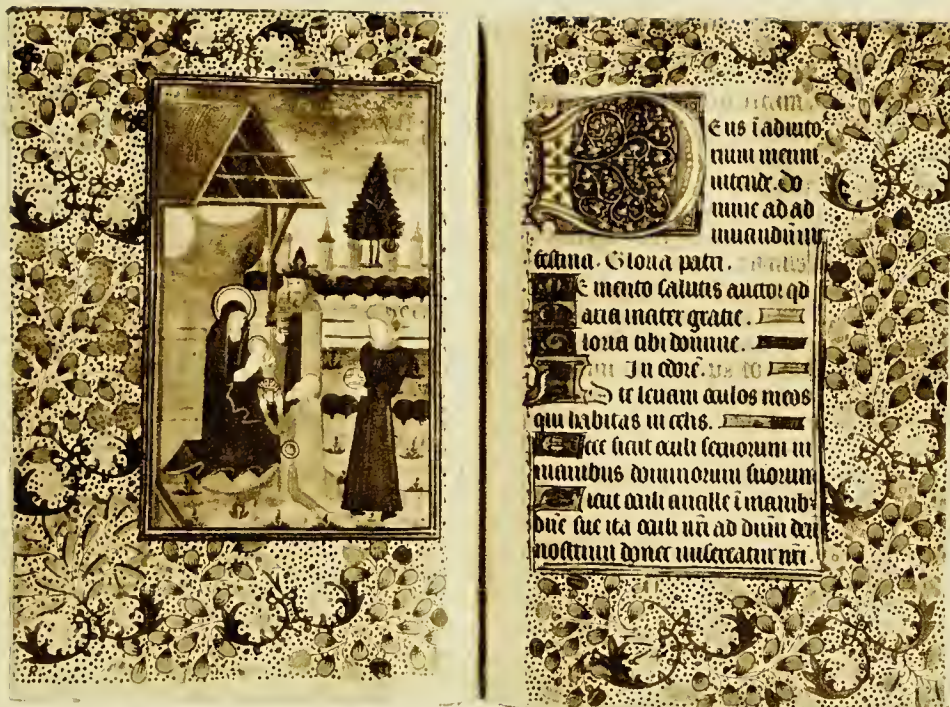 Deus i adiuto
rium meum
intende. do
mine ad ad
iuuandum me
festina. Gloria patri.
Memento salutis auctor qd
Maria mater gratie.
Gloria tibi domine.
Ad te leuaui oculos meos
qui habitas in celis.
Ecce sicut oculi seruorum in
manibus dominorum suorum
Sicut oculi ancille i manib;
dne sue ita oculi nri ad dnm deu
nostrum donec misereatur nri.